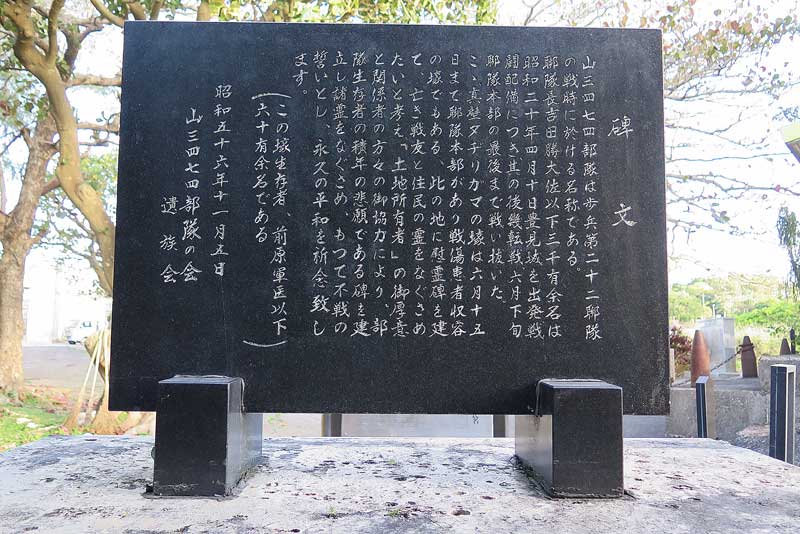 碑文
山三四七四部隊は歩兵第二十二聯隊
の戦時に於ける名称である。
聯隊長吉田勝大佐以下三千有余名は
昭和二十年四月十日豊見城を出発戦
闘配備につき其の後幾転戦六月下旬
聯隊本部の最後まで戦い抜いた。
こゝ真壁ヌチリガマの壕は六月十五
日まで聯隊本部があり戦傷患者収容
の壕でもある、此の地に慰霊碑を建
て、亡き戦友と住民の霊をなぐさめ
たいと考え「土地所有者」の御厚意
と関係者の方々の御協力により部
隊生存者の積年の悲願である碑を建
立し諸霊をなぐさめ、もつて不戦の
誓いとし、永久の平和を祈念致し
ます。
(この壕生存者、前原軍医以下
六十有余名である)
昭和五十六年十一月五日
山三四七四部隊の会
遺族会